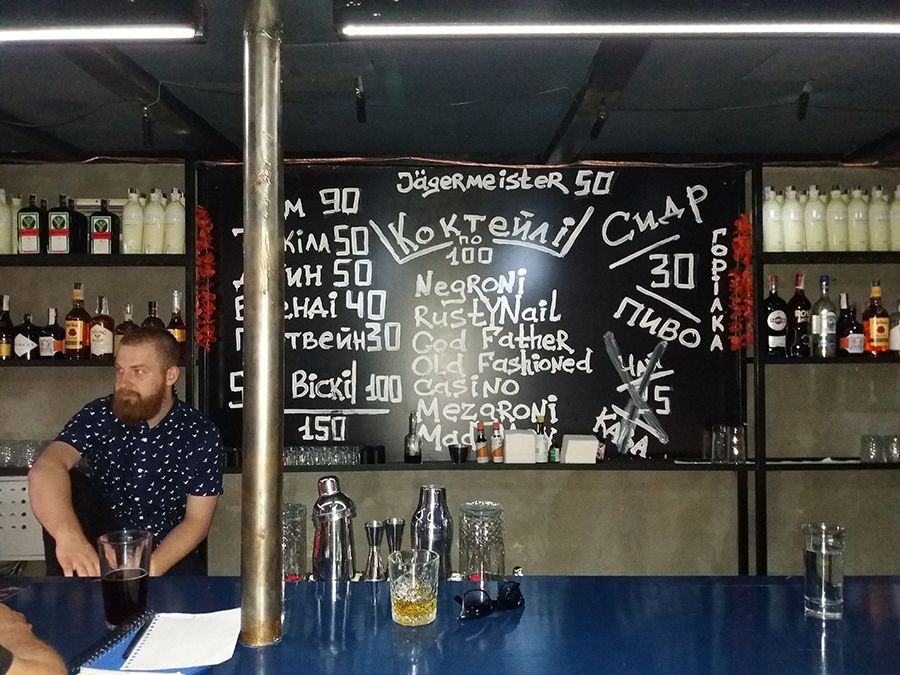 Jägermeister 50
90
Кіла 50
50
40
30
Віскі 100
150
Коктейлі
по
100
Negroni
Rusty Nail
God Father
Old Fashioned
Casino
Mezgroni
Сидр
30
Пиво
5
Кава
Горілка